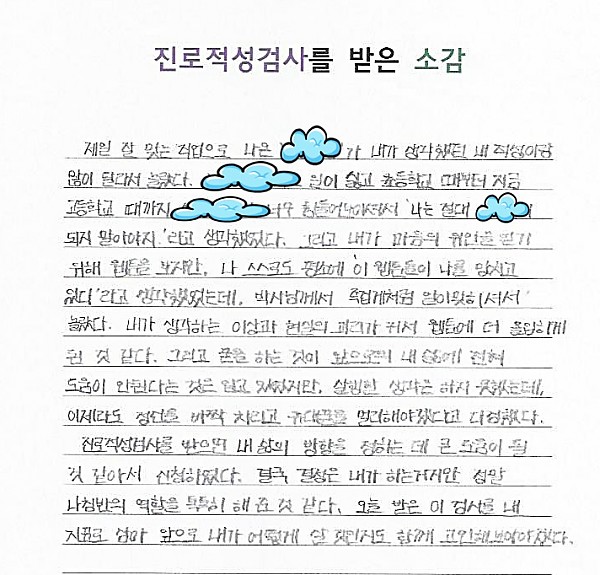 진로적성검사를 받은 소감
제일 잘 맞는 직업으로 나온 가 내가 생각했던 내 적성이랑
많이 달라서 놀랐다. 일이 싫고 초등학교 때부터 지금
고등학교 때까지 너무 힘들어보이셔서 '나는 절대
되지 말아야지.'라고 생각했었다. 그리고 내가 마음의 위안을 얻기
위해 웹툰을 보지만, 나 스스로도 평소에 '이 웹툰들이 나를 망치고
있다'라고 생각했었는데, 박사님께서 족집게처럼 알아맞히셔서
놀랐다. 내가 생각하는 이상과 현실의 괴리가 커서 웹툰에 더 몰입하게
된 것 같다. 그리고 폰을 하는 것이 앞으로의 내 삶에 전혀
도움이 안된다는 것은 알고 있었지만, 실행할 생각은 하지 못했는데,
이제라도 정신을 바짝 차리고 휴대폰을 멀리해야겠다고 다짐했다.
진로적성검사를 받으면 내 삶의 방향을 정하는 데 큰 도움이 될
것 같아서 신청하였다. 결국, 결정은 내가 하는거지만 정말
나침반의 역할을 톡톡히 해 준 것 같다. 오늘 받은 이 검사를 내
지표로 삼아 앞으로 내가 어떻게 살 것인지도 함께 고민해보아야겠다.